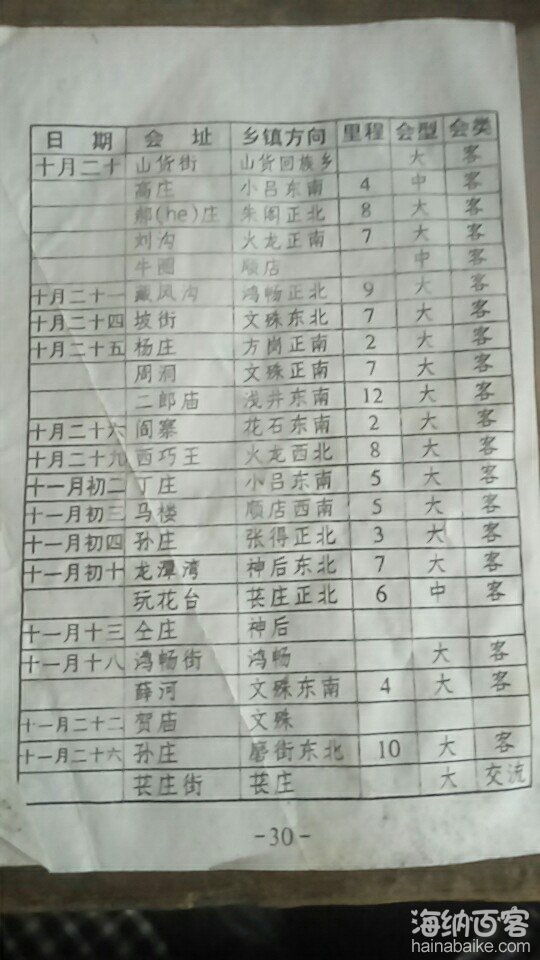 日 期 会 址 乡镇方向 里程 会型 会类
十月二十 山货街 山货回族乡 大 客
高庄 小吕东南 4 中 客
郝(he)庄 朱阁正北 8 大 客
刘沟 火龙正南 7 大 客
牛圈 顺店 中 客
十月二十一 戴凤沟 鸿畅正北 9 大 客
十月二十四 坡街 文殊东北 7 大 客
十月二十五 杨庄 方岗正南 2 大 客
周洞 文殊正南 7 大 客
二郎庙 浅井东南 12 大 客
十月二十六 阎寨 花石东南 2 大 客
十月二十九 西巧王 火龙西北 8 大 客
十一月初二 丁庄 小吕东南 5 大 客
十一月初三 马楼 顺店西南 5 大 客
十一月初四 孙庄 张得正北 3 大 客
十一月初十 龙潭湾 神后东北 7 大 客
玩花台 苌庄正北 6 中 客
十一月十三 仝庄 神后
十一月十八 鸿畅街 鸿畅 大 客
薛河 文殊东南 4 大 客
十一月二十二 贺庙 文殊
十一月二十六 孙庄 磨街东北 10 大 客
苌庄街 苌庄 大 交流
-30-
海纳百客
hainabaike.com